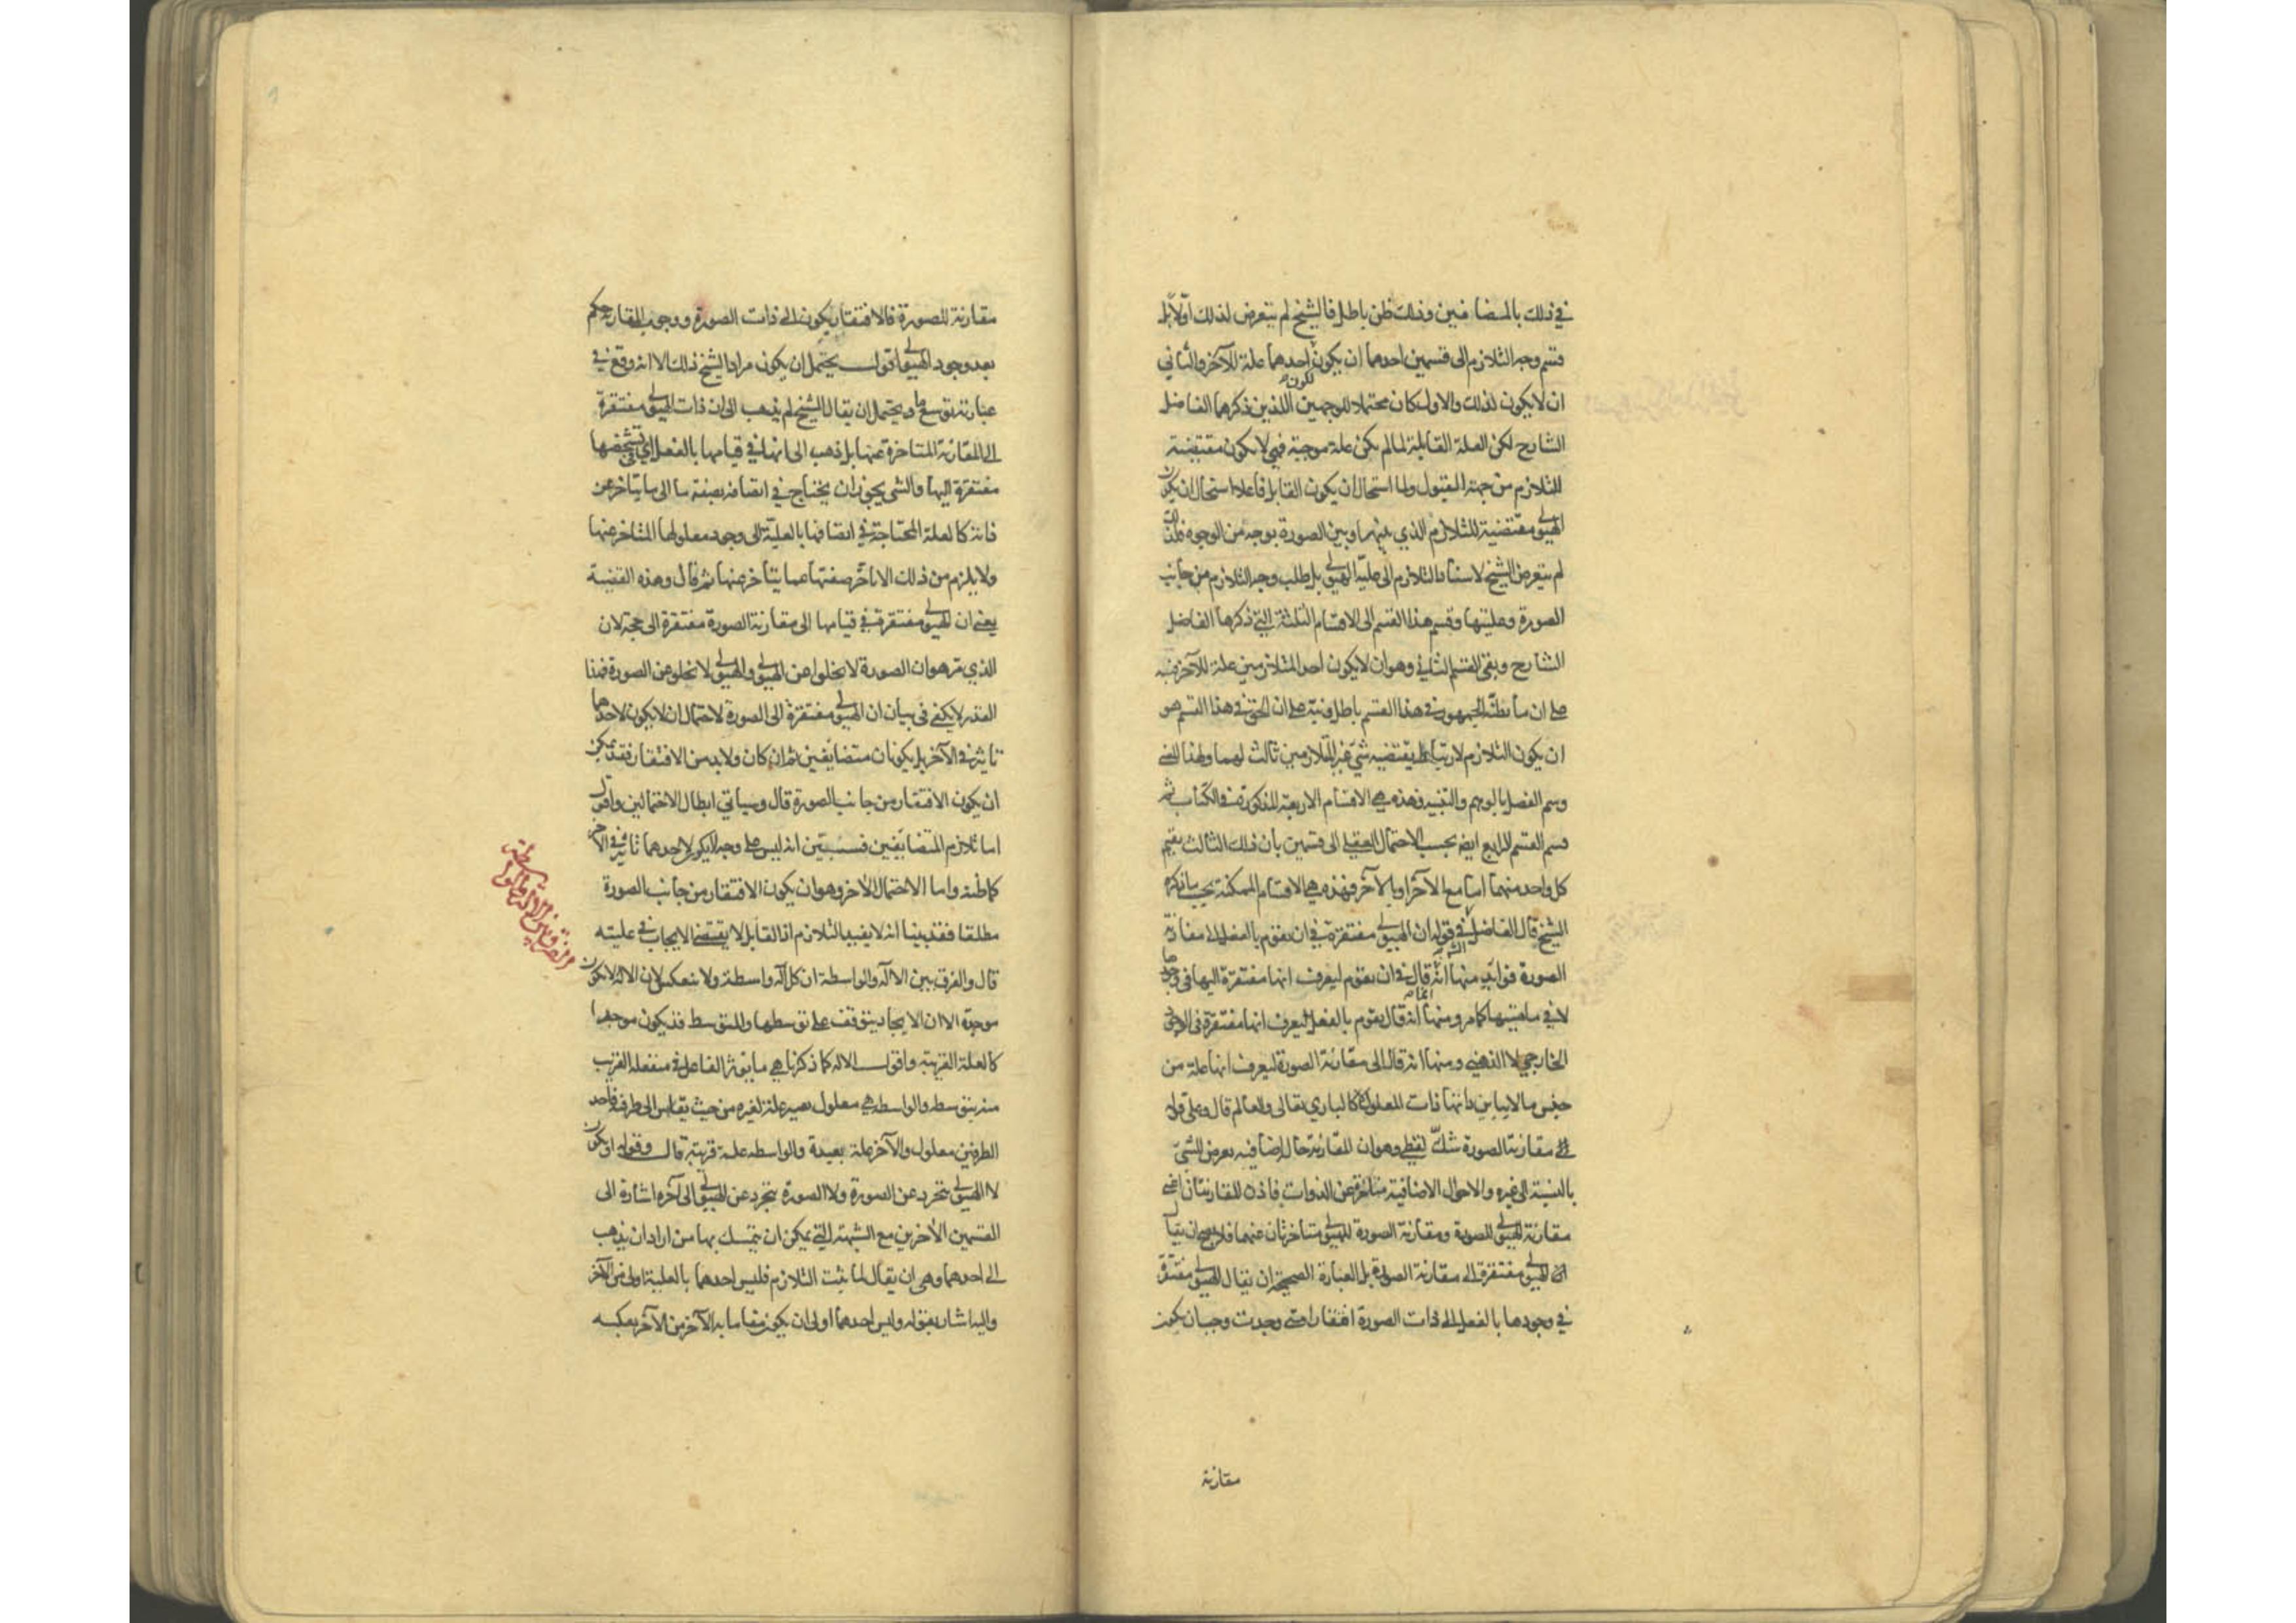 في ذلك بالمضافين وذلك ظن باطل فالشيخ لم يتعرض لذلك اولا بل
قسم وجه التلازم الى قسمين احدهما ان يكون احدهما علة للآخر والثاني
ان لا يكون كذلك والاول كان محتملا للوجهين اللذين ذكرهما الفاضل
الشارح لكن العلة القابلية لما لم تكن علة موجبة فهي لا تكون مقتضية
للتلازم من جهة المقبول ولما استحال ان يكون القابل فاعلا استحال ان يكون
الهيولى مقتضية للتلازم الذي بينهما وبين الصورة بوجه من الوجوه فلذلك
لم يتعرض الشيخ لاسناد التلازم الى علية الهيولى بل طلب وجه التلازم من جانب
الصورة وعليتها وقسم هذا القسم الى الاقسام الثلثة التي ذكرها الفاضل
الشارح وبقي القسم الثاني وهو ان لا يكون احد المتلازمين علة للآخر فنبه
على ان ما يظنه الجمهور في هذا القسم باطل ونبه على ان الحق في هذا القسم هو
ان يكون التلازم لارتباط يقتضيه شئ غير المتلازمين ثالث لهما ولهذا المعنى
وسم الفصل بالوهم والتنبيه فهذه هي الاقسام الاربعة المذكورة في الكتاب ثم
قسم القسم الرابع ايضا بحسب الاحتمال العقلي الى قسمين بأن ذلك الثالث يقيم
كل واحد منهما اما مع الآخر او بالآخر فهذه هي الاقسام الممكنة بحسب ما ذكره
الشيخ قال الفاضل في قوله ان الهيولى مفتقرة في ان تقوم بالفعل الى مقارنة
الصورة فوايد منها انه قال في ان تقوم ليعرف انها مفتقرة اليها في وجودها
لا في ماهيتها كما مر ومنها انه انما قال تقوم بالفعل ليعرف انها مفتقرة في
الخارجي لا الذهني ومنها انه قال الى مقارنة الصورة ليعرف انها علة من
جنس ما لا يباين ذاتها ذات المعلول لا كالباري تعالى والعالم قال وعلى قوله
الى مقارنة الصورة شك لفظي وهو ان المقارنة حال اضافية يعرض للشئ
بالنسبة الى غيره والاحوال الاضافية متأخرة عن الذوات فاذن المقارنتان اعني
مقارنة الهيولى للصورة ومقارنة الصورة للهيولى متأخرتان عنهما فلا يصح ان يقال
ان الهيولى مفتقرة الى مقارنة الصورة بل العبارة الصحيحة ان يقال الهيولى مفتقرة
في وجودها بالفعل الى ذات الصورة افتقارا متى وجدت وجب ان تكون
مقارنة
مقارنة للصورة فالافتقار يكون الى ذات الصورة ووجوب المقارنة حكم
بعد وجود الهيولى اقول يحتمل ان يكون مراد الشيخ ذلك الا انه وقع في
عبارته توسع ما ويحتمل ان يقال الشيخ لم يذهب الى ان ذات الهيولى مفتقرة
الى المقارنة المتأخرة عنها بل ذهب الى انها في قيامها بالفعل اي في تشخصها
مفتقرة اليها والشئ يجوز ان يحتاج في اتصافه بصفة ما الى ما يتاخر عن
ذاته كالعلة المحتاجة في اتصافها بالعلية الى وجود معلولها المتاخر عنها
ولا يلزم من ذلك الا تأخر صفتها عما يتاخر عنها ثم قال وهذه القضية
يعني ان الهيولى مفتقرة في قيامها الى مقارنة الصورة مفتقرة الى حجة لان
الذي مر هو ان الصورة لا تخلوا عن الهيولى والهيولى لا تخلو عن الصورة فهذا
القدر لا يكفي في بيان ان الهيولى مفتقرة الى الصورة لاحتمال ان لا يكون لاحدهما
تاثير في الآخر بل يكونان متضايفين ثم ان كان ولا بد من الافتقار فقد يمكن
ان يكون الافتقار من جانب الصورة قال وسيأتي ابطال الاحتمالين واقول
اما تلازم المتضايفين فستبين انه ليس على وجه لا يكون لاحدهما تاثير في الآخر
كما ظنه واما الاحتمال الآخر وهو ان يكون الافتقار من جانب الصورة
مطلقا فقد بينا انه لا يفيد التلازم اذ القابل لا يقتضي الايجاب في عليته
قال والفرق بين الآلة والواسطة ان كل آلة واسطة ولا ينعكس لان الآلة لا تكون
موجدة الا ان الايجاد يتوقف على توسطها والمتوسط قد يكون موجدا
كالعلة القريبة واقول الآلة كما ذكرنا هي ما يؤثر الفاعل في منفعله القريب
منه بتوسطه والواسطة هي معلول يصير علة لغيره من حيث يقاس الى طرفيه فاحد
الطرفين معلول والآخر علة بعيدة والواسطة علة قريبة قال وقوله او يكون
لا الهيولى تتجرد عن الصورة ولا الصورة تتجرد عن الهيولى الى آخره اشارة الى
القسمين الآخرين مع الشبهة التي يمكن ان يتمسك بها من اراد ان يذهب
الى احدهما وهي ان يقال لما ثبت التلازم فليس احدهما بالعلية اولى من الآخر
واليه اشار بقوله وليس احدهما اولى ان يكون مقاما به الآخر من الآخر بعكسه
الفرق بين الآلة والواسطة